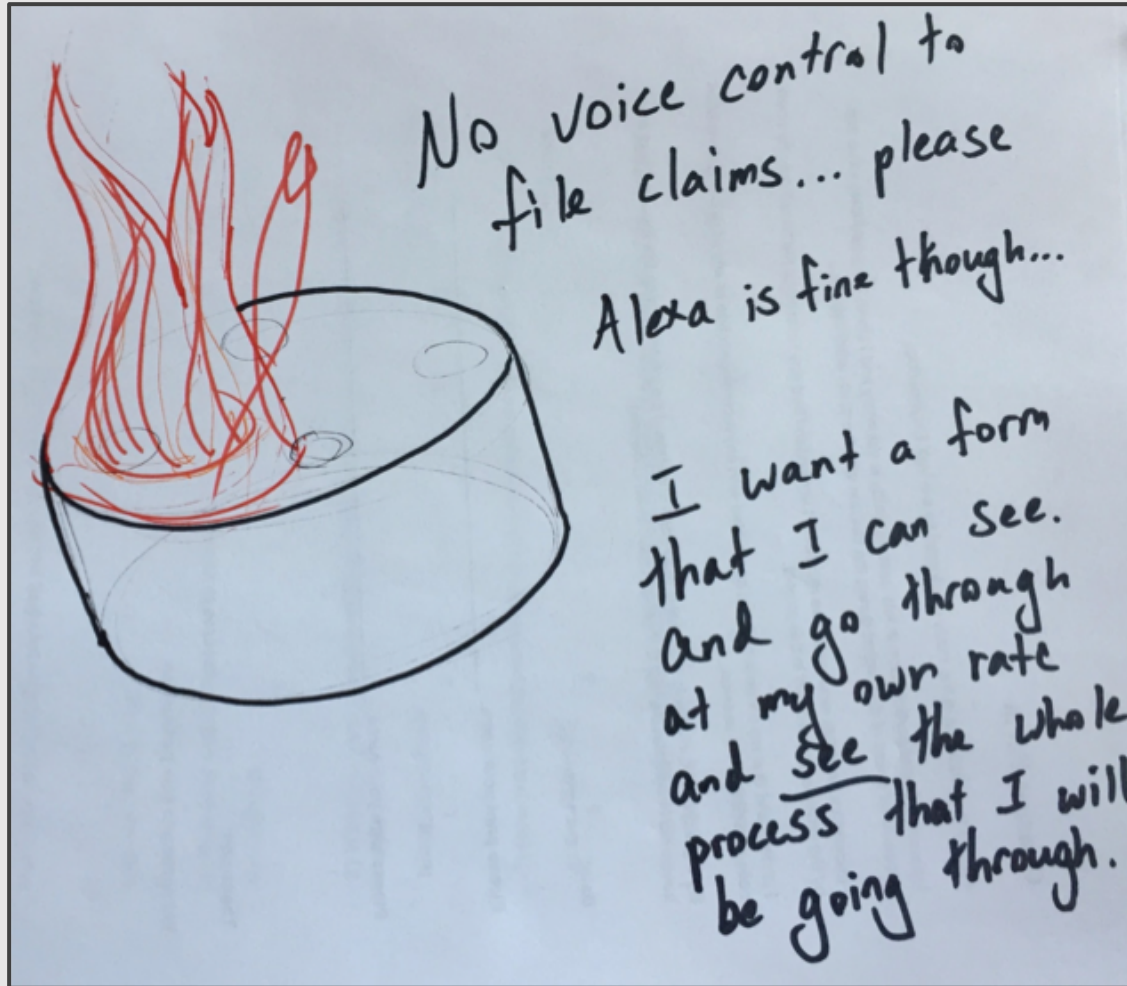 No voice control to
file claims... please
Alexa is fine though...
I want a form
that I can see.
and go through
at my own rate
and see the whole
process that I will
be going through.